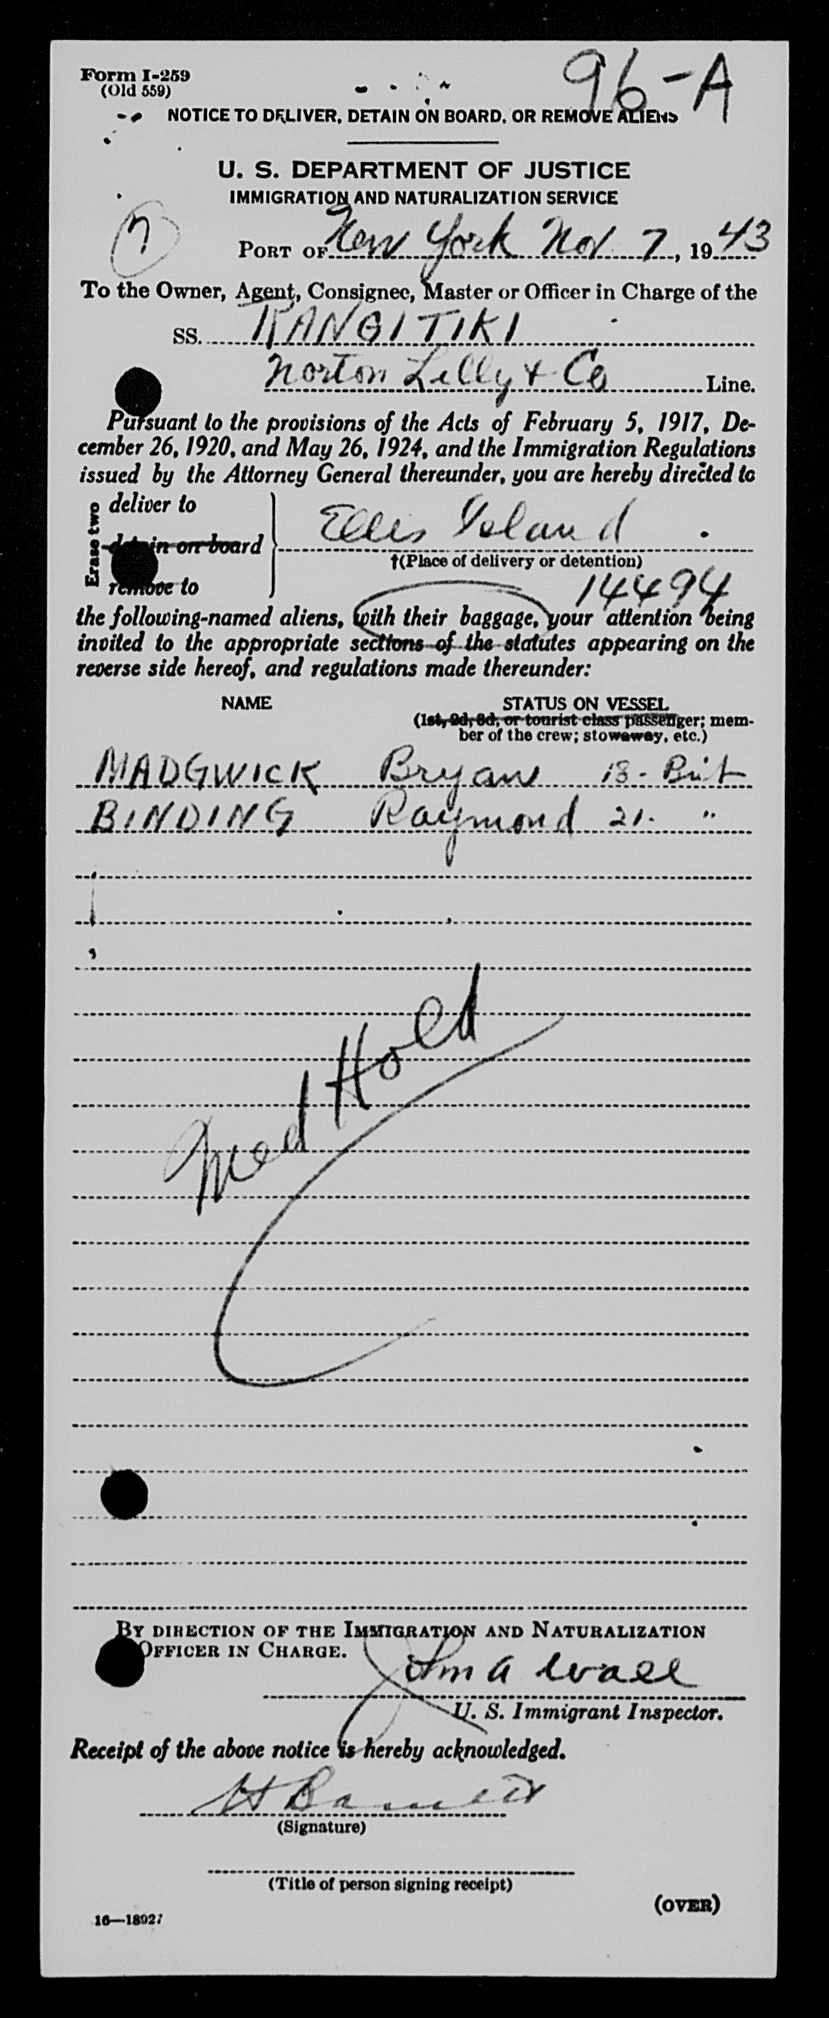 Form I-259
(Old 559)
96-A
NOTICE TO DELIVER, DETAIN ON BOARD, OR REMOVE ALIENS
U. S. DEPARTMENT OF JUSTICE
IMMIGRATION AND NATURALIZATION SERVICE
7
PORT OF New York Nov 7, 1943
To the Owner, Agent, Consignee, Master or Officer in Charge of the
SS. RANGITIKI
Norton Lilly & Co Line.
Pursuant to the provisions of the Acts of February 5, 1917, De-
cember 26, 1920, and May 26, 1924, and the Immigration Regulations
issued by the Attorney General thereunder, you are hereby directed to
Erase two
deliver to
detain on board
remove to
Ellis Island
†(Place of delivery or detention)
14494
the following-named aliens, with their baggage, your attention being
invited to the appropriate sections of the statutes appearing on the
reverse side hereof, and regulations made thereunder:
NAME STATUS ON VESSEL
(1st, 2d, 3d, or tourist class passenger; mem-
ber of the crew; stowaway, etc.)
MADGWICK Bryan 18 - Brit
BINDING Raymond 21 - "
Med Hold
BY DIRECTION OF THE IMMIGRATION AND NATURALIZATION
OFFICER IN CHARGE.
Wall
U. S. Immigrant Inspector.
Receipt of the above notice is hereby acknowledged.
H Barnett
(Signature)
(Title of person signing receipt)
(OVER)
16—18927